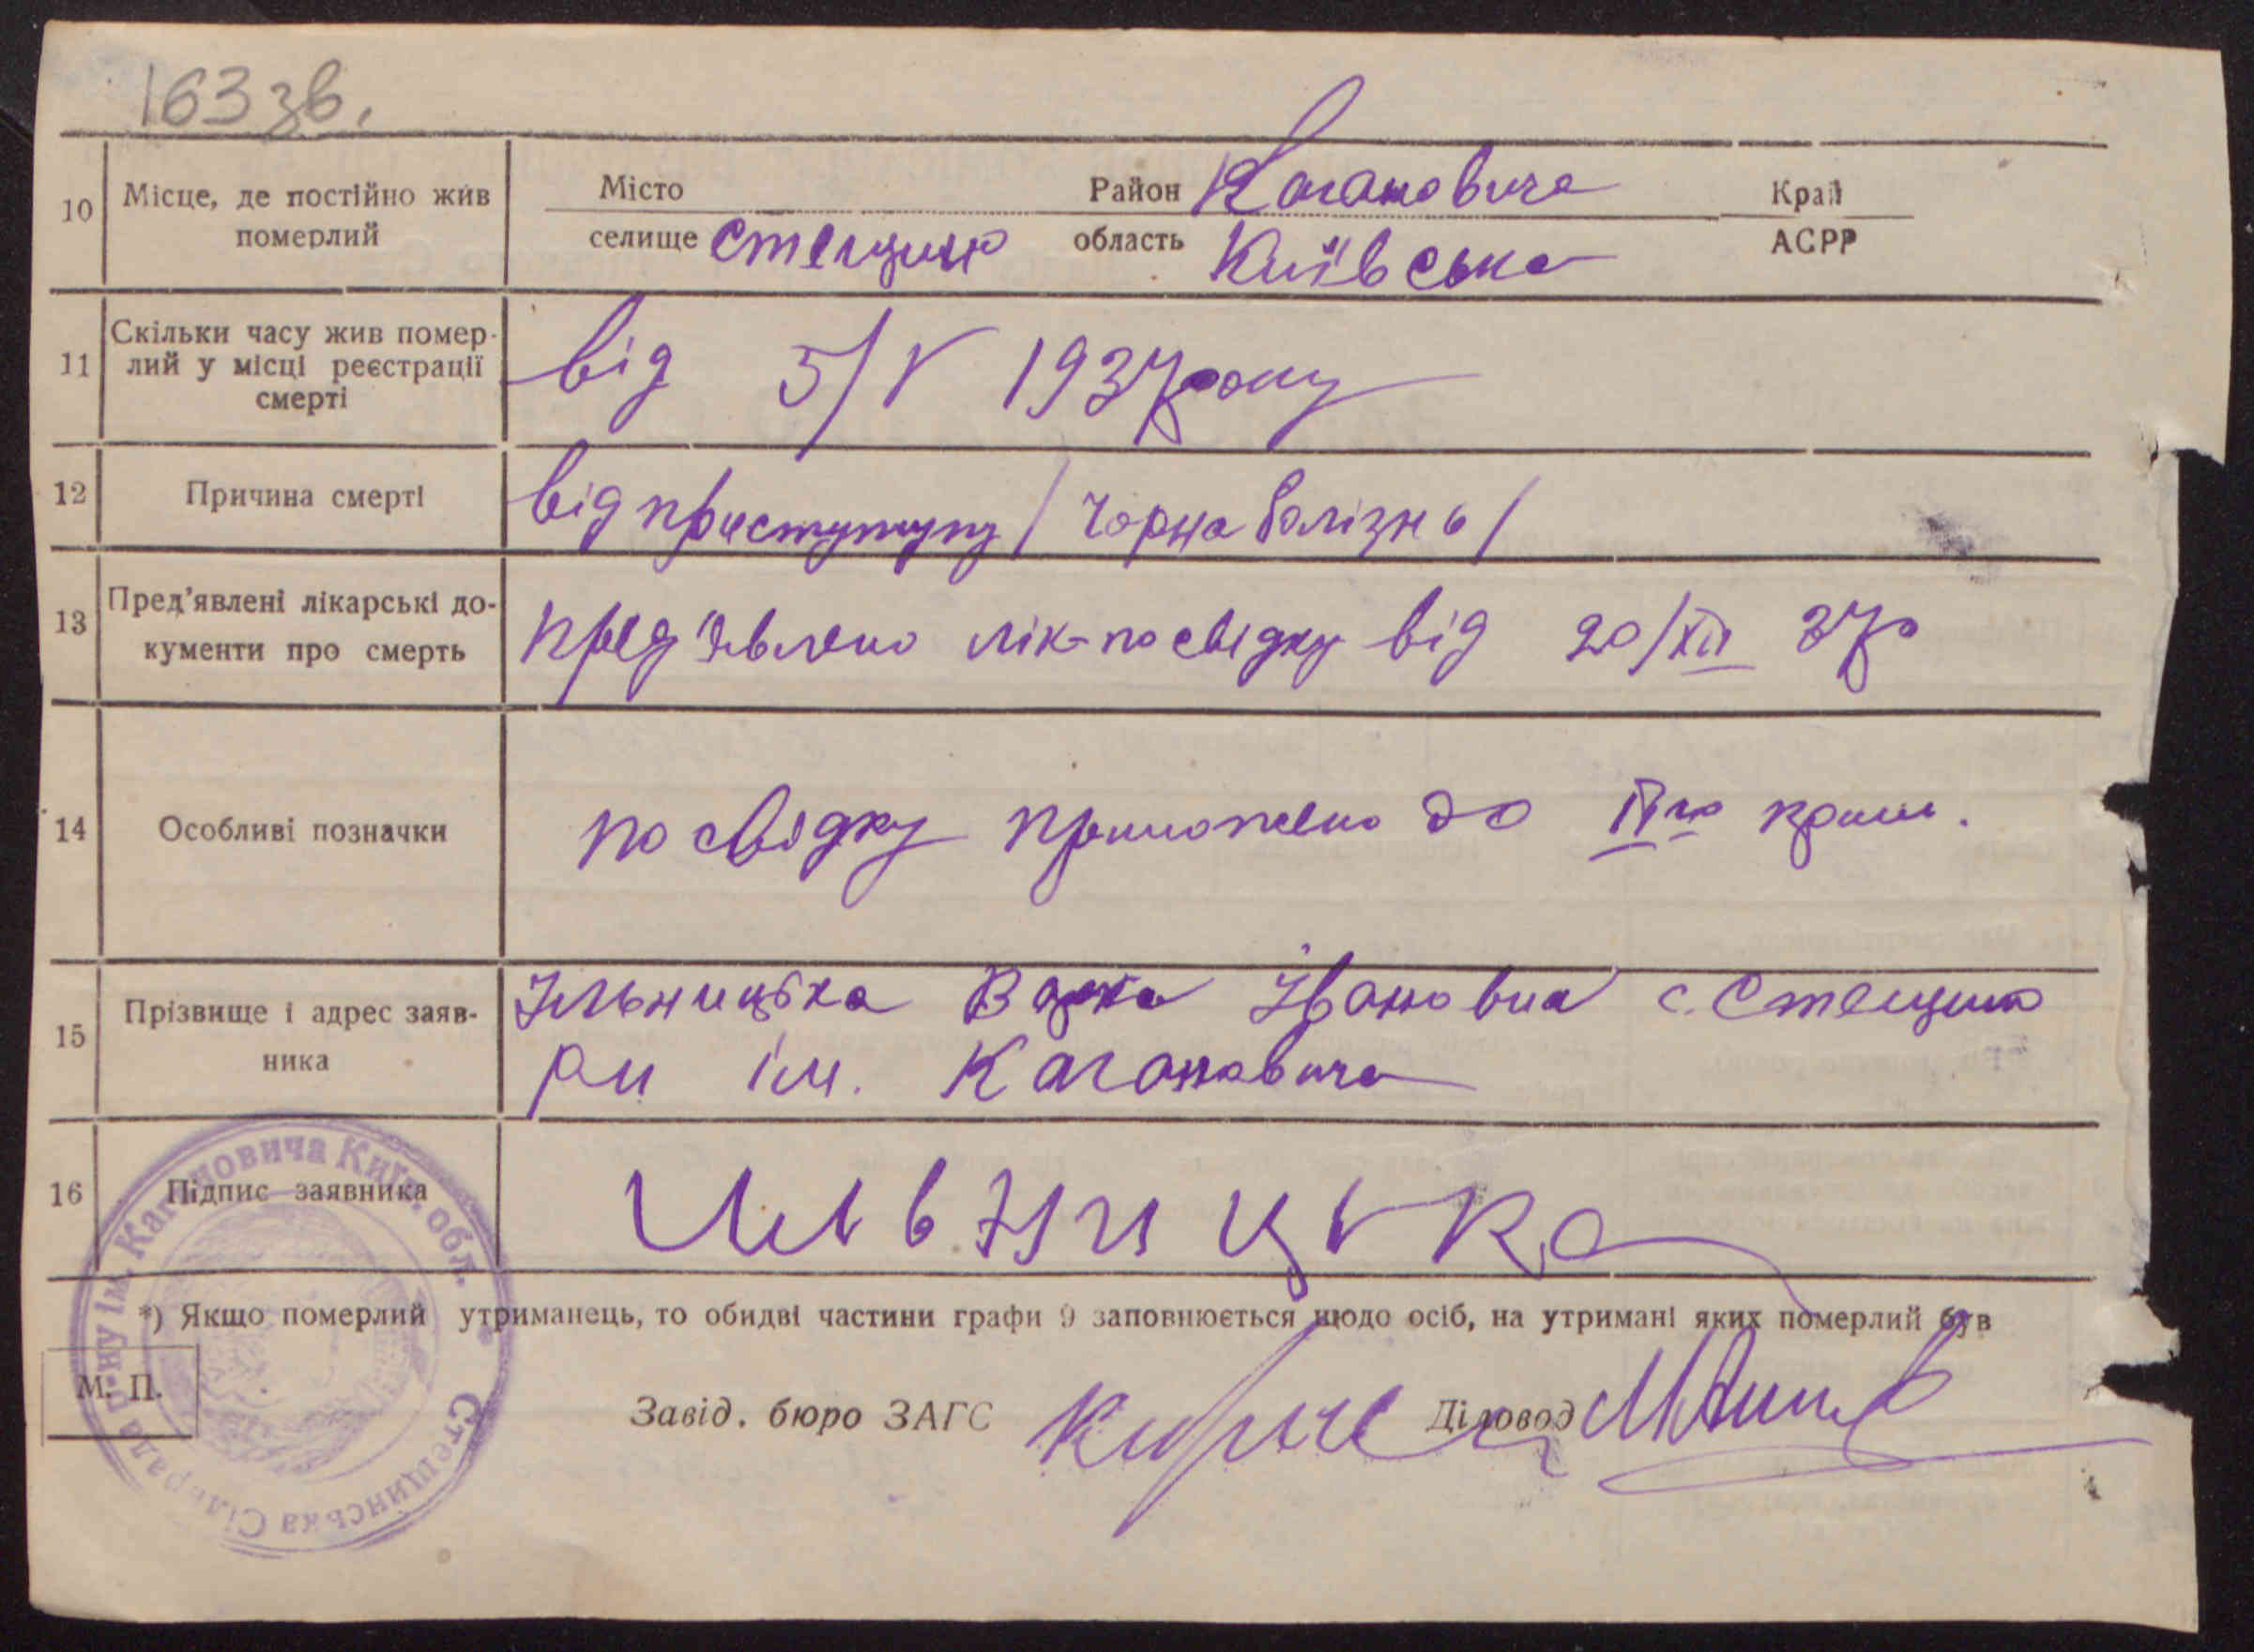 163 зв.
10 Місце, де постійно жив померлий
Місто Район Кагановича Край
селище Стещино область Київська АСРР
11 Скільки часу жив помер-
лий у місці реєстрації
смерті
від 5/V 1937 року
12 Причина смерті від приступу / Чорна болізнь /
13 Пред'явлені лікарські до-
кументи про смерть
пред'явлено лік-посвідку від 20/XII 37р
14 Особливі позначки посвідку приложено до
15 Прізвище і адрес заяв-
ника
Ільницька Івановна с. Стещино
р-н ім. Кагановича
16 Підпис заявника Ильницька
*) Якщо померлий утриманець, то обидві частини графи 9 заповнюється щодо осіб, на утримані яких померлий був
М. П.
Завід. бюро ЗАГС Діловод
Стещинська Сільрада р-ну ім. Кагановича Київ. обл.